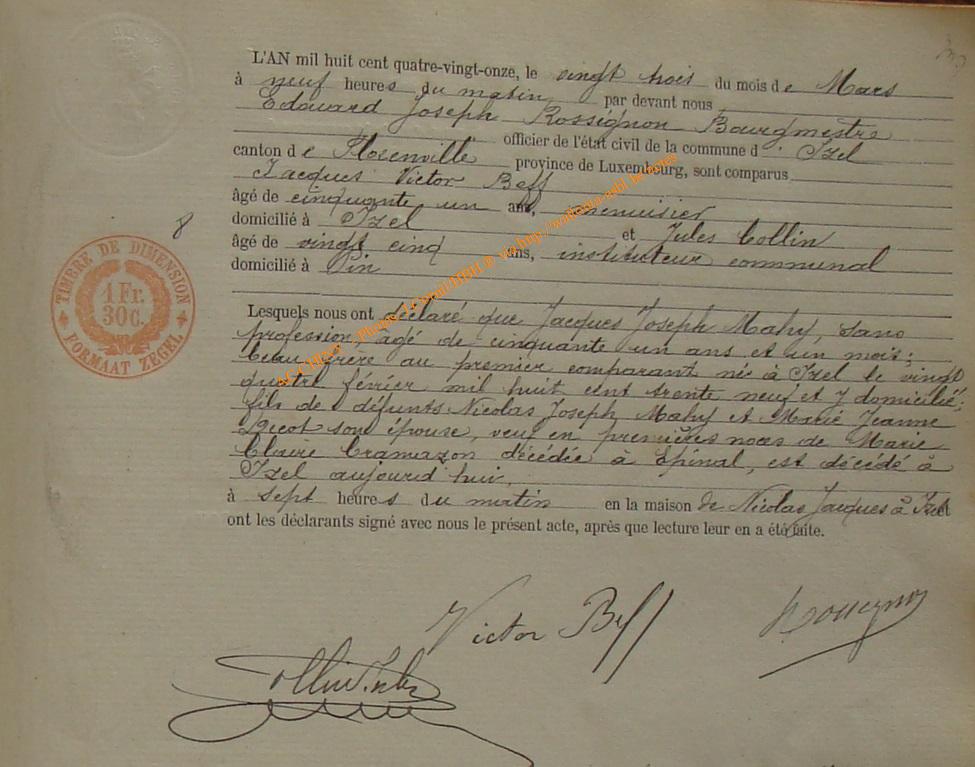 L'AN mil huit cent quatre-vingt-onze, le vingt trois du mois de Mars
à neuf heures du matin par devant nous
Edouard Joseph Rossignon Bourgmestre
officier de l'état civil de la commune d' Izel
canton de Florenville province de Luxembourg, sont comparus
Jacques Victor Beff
âgé de cinquante un ans, menuisier
domicilié à Izel et Jules Collin
âgé de vingt cinq ans, instituteur communal
domicilié à Pin
8
TIMBRE DE DIMENSION
1 Fr.
30 C.
FORMAAT ZEGEL
Lesquels nous ont déclaré que Jacques Joseph Mahy, sans
profession, âgé de cinquante un ans et un mois;
beau frère au premier comparant né à Izel le vingt
quatre février mil huit cent trente neuf et y domicilié;
fils de défunts Nicolas Joseph Mahy et Marie Jeanne
son épouse, veuf en premières noces de Marie
Claire Cramazon décédée à Epinal, est décédé à
Izel aujourd'hui,
à sept heures du matin en la maison de Nicolas Jacques à Izel
ont les déclarants signé avec nous le présent acte, après que lecture leur en a été faite.
Victor Beff
Rossignon
Collin Jules